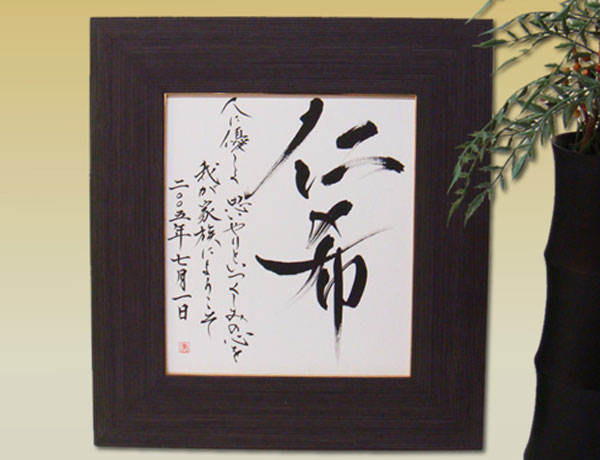 仁希
人に優しく思いやりといつくしみの心を
我が家族にようこそ
二〇〇五年七月一日